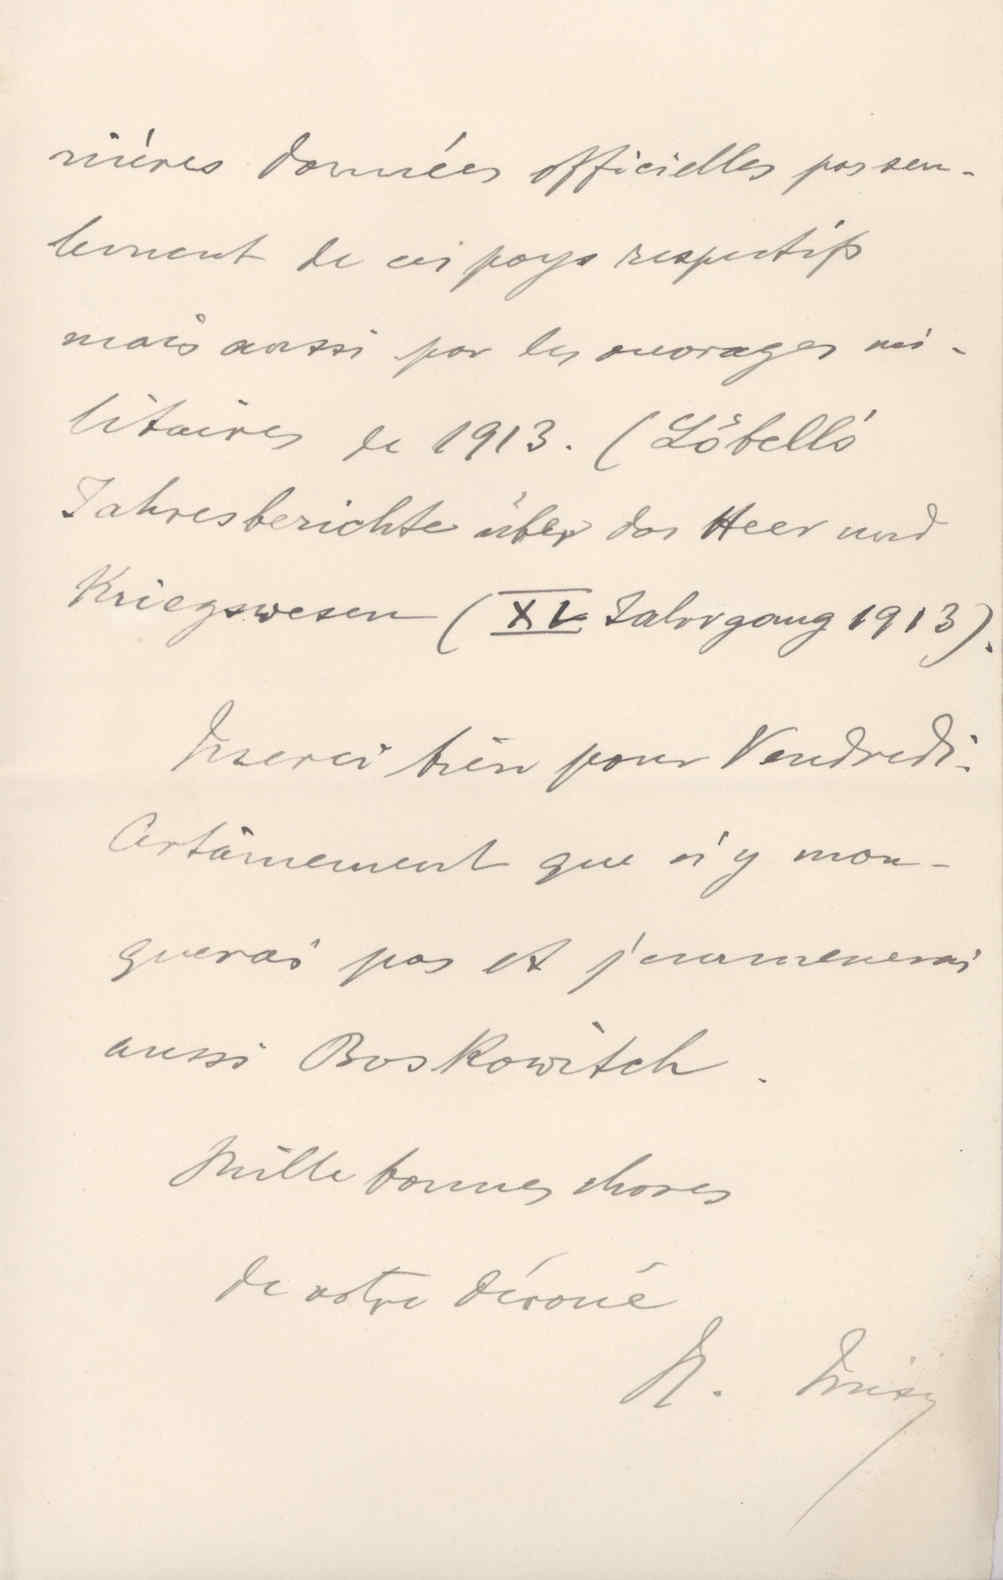 nières données officielles pas seu-
lement de ces pays respectifs
mais aussi par les ouvrages mi-
litaires de 1913. (Löbell's
Jahresberichte über das Heer und
Kriegswesen (XL Jahrgang 1913).
Merci bien pour Vendredi.
Certainement que n'y man-
querai pas et j'emmenerai
aussi Boskowitch.
Mille bonnes choses
de votre dévoué
M.